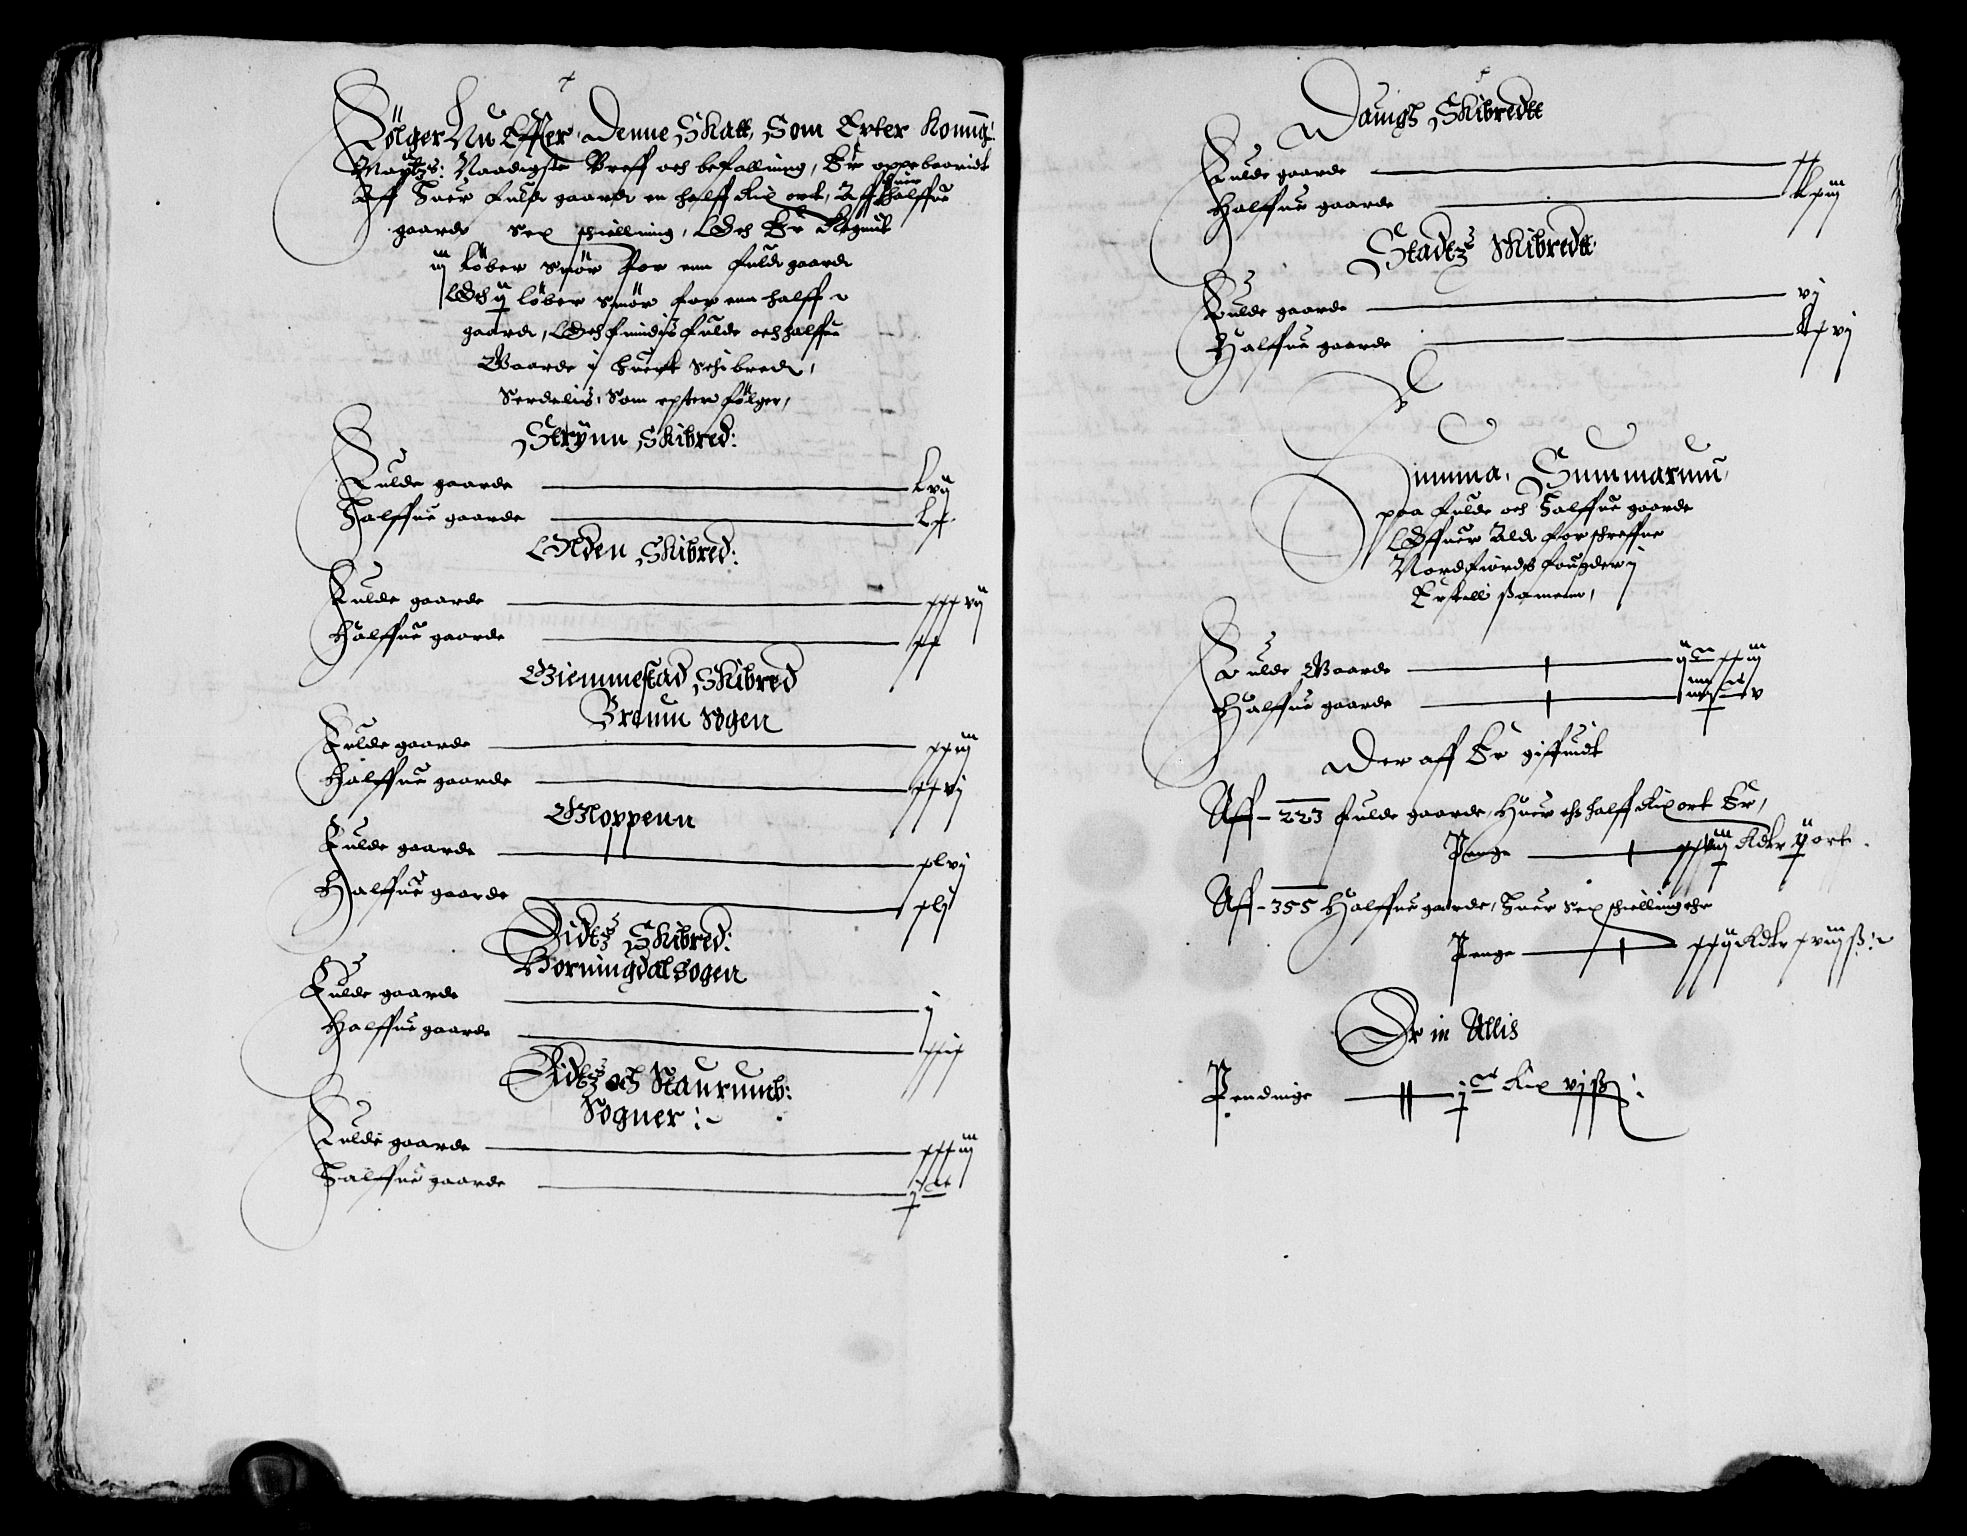 Fölger Nu Effter, Denne Skatt, Som Efter Konng:
Maÿtz: Naadigste Breff och befalling, Er oppebaaridt
Aff huer fulde gaarde en halff Rix ort, Aff huer halffue
gaarde sex schielling, Och Er Regnit
iij löber smör for enn fulde gaarde
Och ij löber smör for enn halff
gaarde, Och findis fulde och halffue
Gaarde i huert schibrede,
Serdelis, Som epther fölger,
Strÿnn Skibred:
Fulde gaarde Lvij
Halffue gaarde Lx
Inden Skibred:
Fulde gaarde xxxvij
Halffue gaarde xx
Giemmestad Skibred
Bremm Sogen
Fulde gaarde xxiij
Halffue gaarde xxvj
Gloppenn
Fulde gaarde xlvj
Halffue gaarde xlj
Eidtz Skibred:
Horningdal sogen
Fulde gaarde j
Halffue gaarde xxix
Eidtz och Naurumb:
Sogner:
Fulde gaarde xxxiij
Halffue gaarde j C
Dauigs Skibredtt
Fulde gaarde xx
Halffue gaarde Lxiij
Stadtz Skibredtt
Fulde gaarde vj
Halffue gaarde Lxvj
Summa, Summarum,
paa fulde och halffue gaarde
Offuer alde forschreffne
Nordfiords fougderij
Erskell sammen,
Fulde Gaarde ij C xxiij
Halffue gaarde iij C Lv
Der aff Er giffuidt
Aff - 223 fulde gaarde, Huer ehr halff Rix ort Er,
Penge xxvij Rdlr iij ort
Aff - 355 Halffue gaarde, huer sex schielling ehr
Penge xxij Rdlr xviij ß:
Er in Allis
Pendinge j C Rix vj ß: